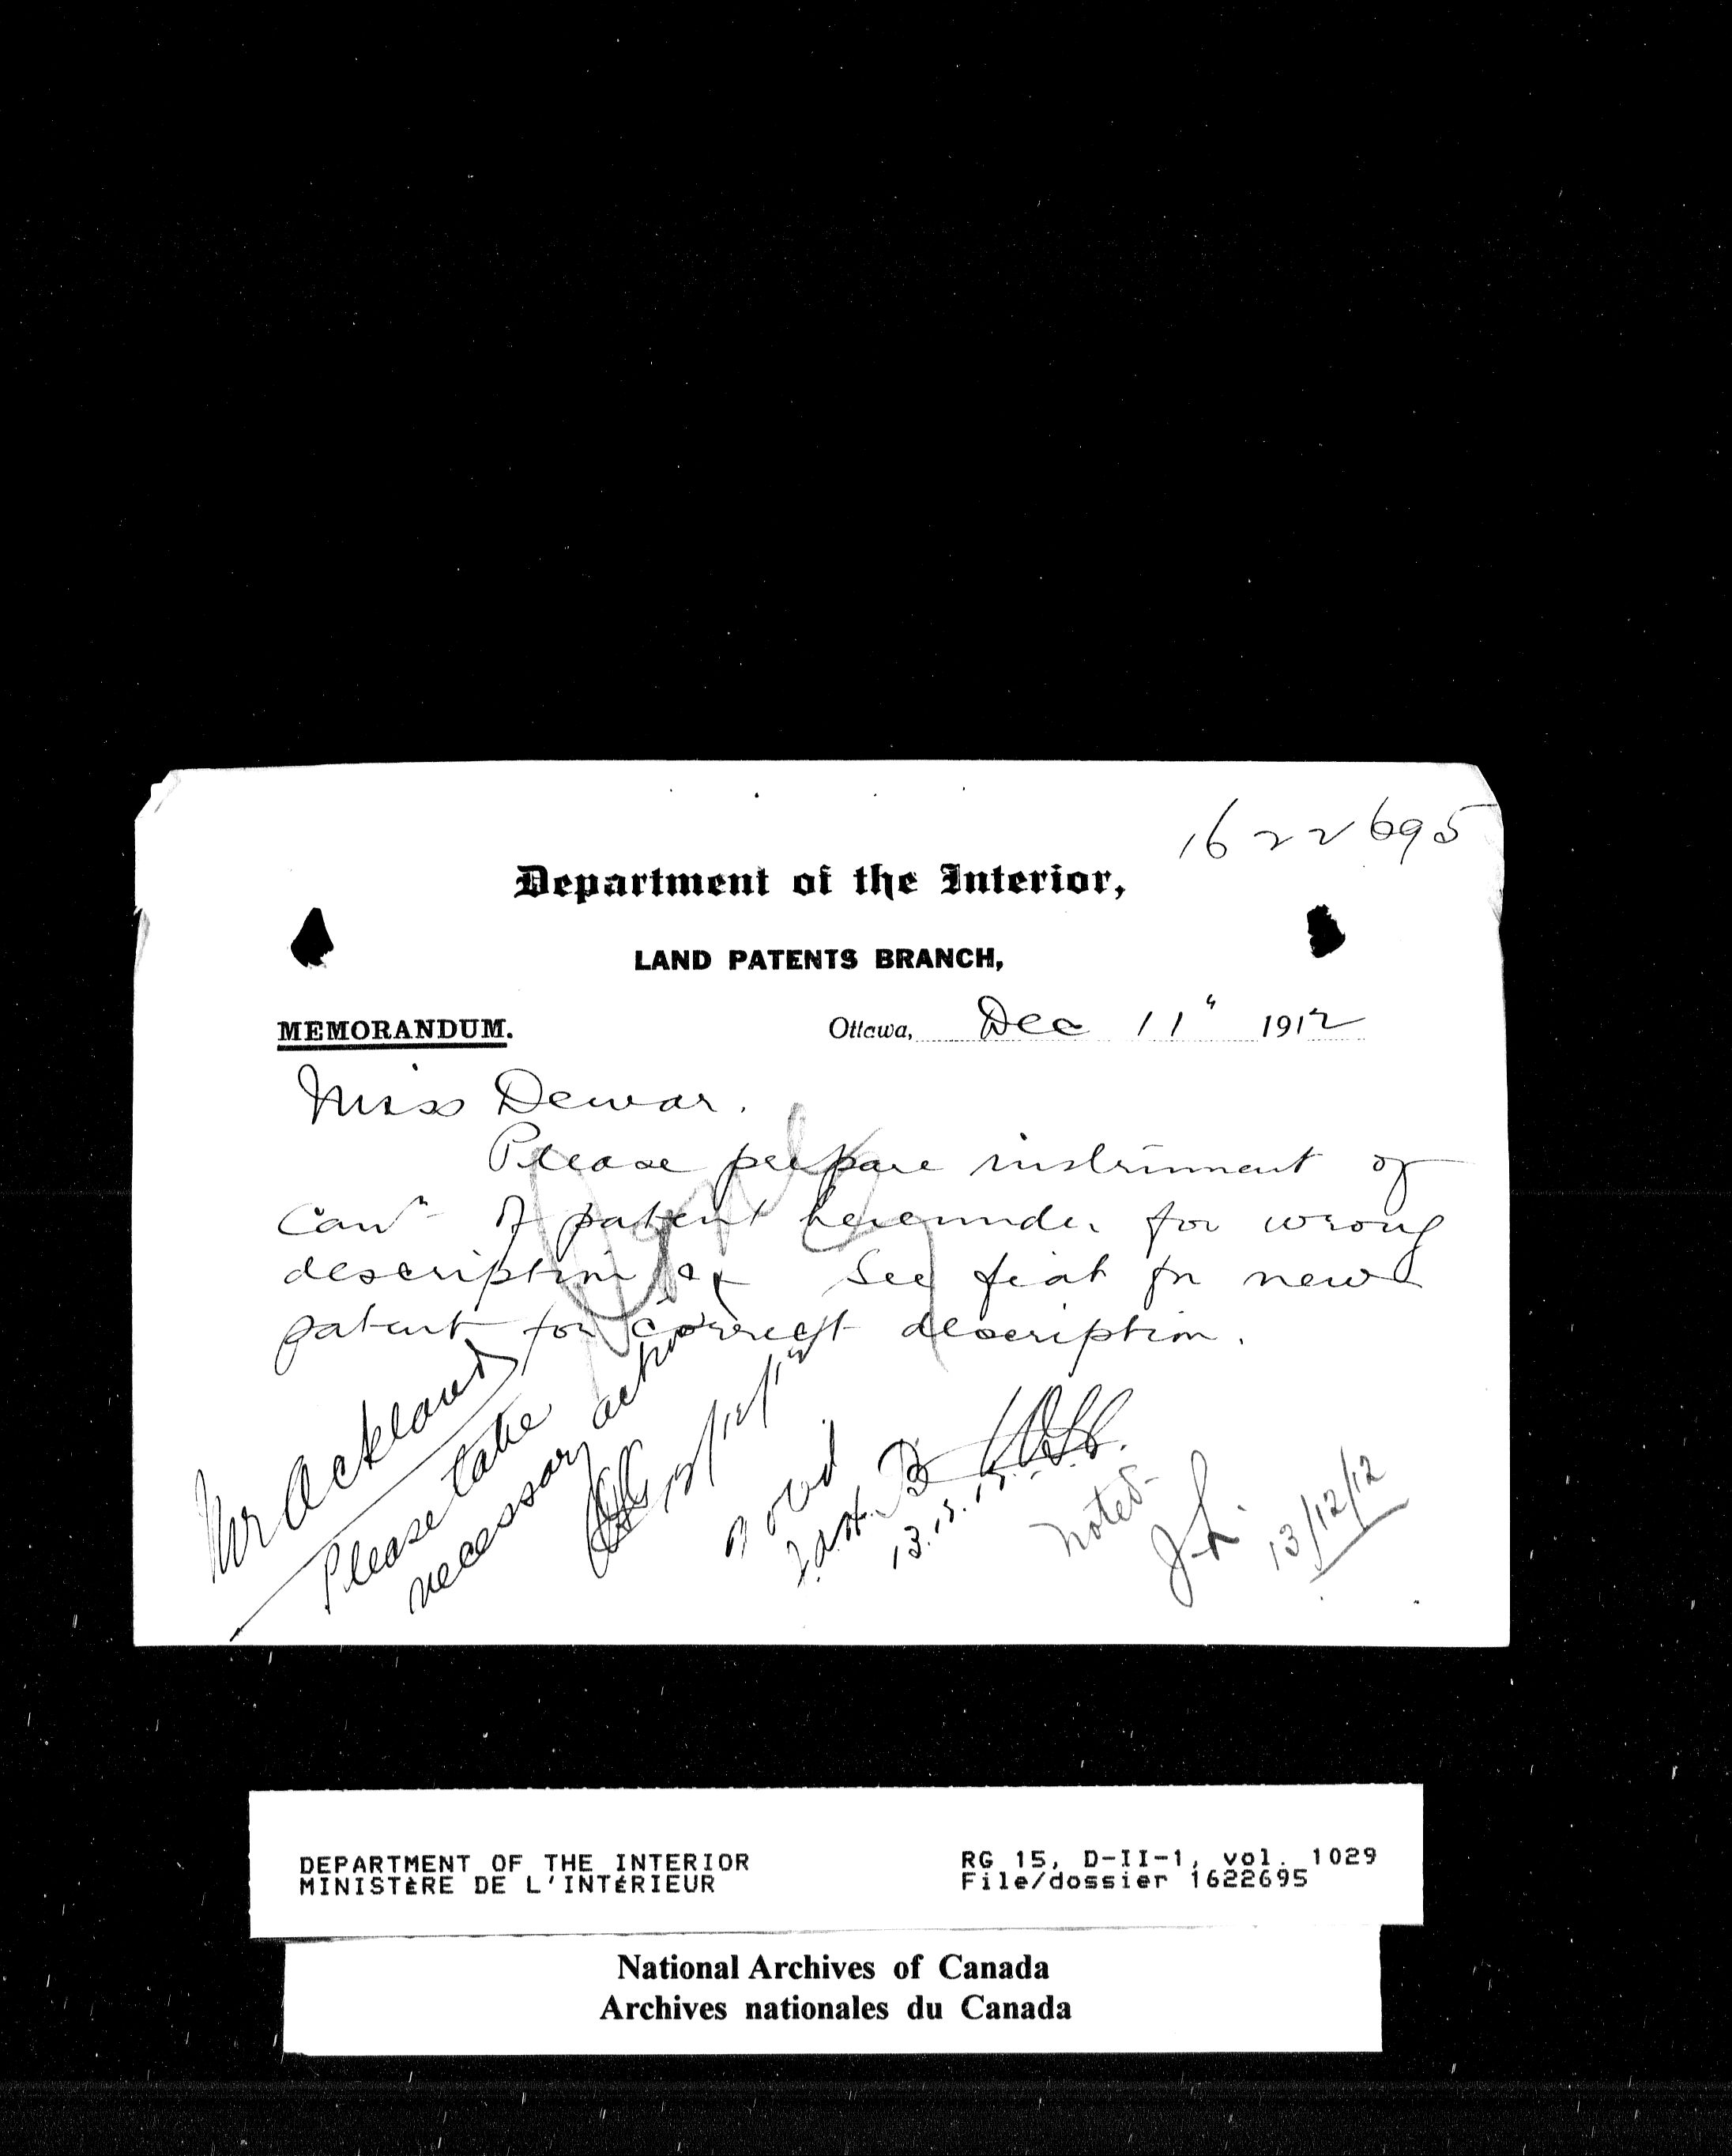 1622695
Department of the Interior,
LAND PATENTS BRANCH,
MEMORANDUM.
Ottawa, Dec 11" 1912
Miss Dewar.
Please prepare instrument of
Canⁿ of patent hereunder for wrong
description & See fiat for new
patent for correct description.
Mr Ackland
Please take
necessary action
13/12/12
Noted
J.A.H.
13.12.12
Noted
J.L.
13/12/12
DEPARTMENT OF THE INTERIOR
MINISTÈRE DE L'INTÉRIEUR
RG 15, D-II-1, vol. 1029
File/dossier 1622695
National Archives of Canada
Archives nationales du Canada